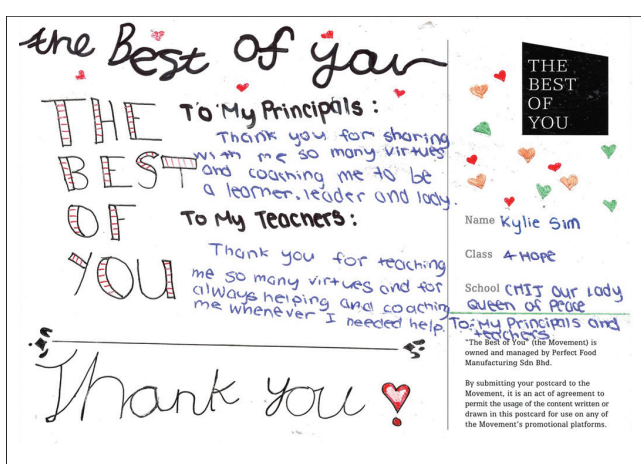 the Best of you
THE
BEST
OF
YOU
To My Principals :
Thank you for sharing
with me so many virtues
and coaching me to be
a learner, leader and lady.
To My Teachers :
Thank you for teaching
me so many virtues and for
always helping and coaching
me whenever I needed help.
Thank you
THE
BEST
OF
YOU
Name Kylie Sim
Class 4 HOPE
School CHIJ Our Lady
Queen of Peace
To: My Principals and
teachers
"The Best of You" (the Movement) is
owned and managed by Perfect Food
Manufacturing Sdn Bhd.
By submitting your postcard to the
Movement, it is an act of agreement to
permit the usage of the content written or
drawn in this postcard for use on any of
the Movement's promotional platforms.